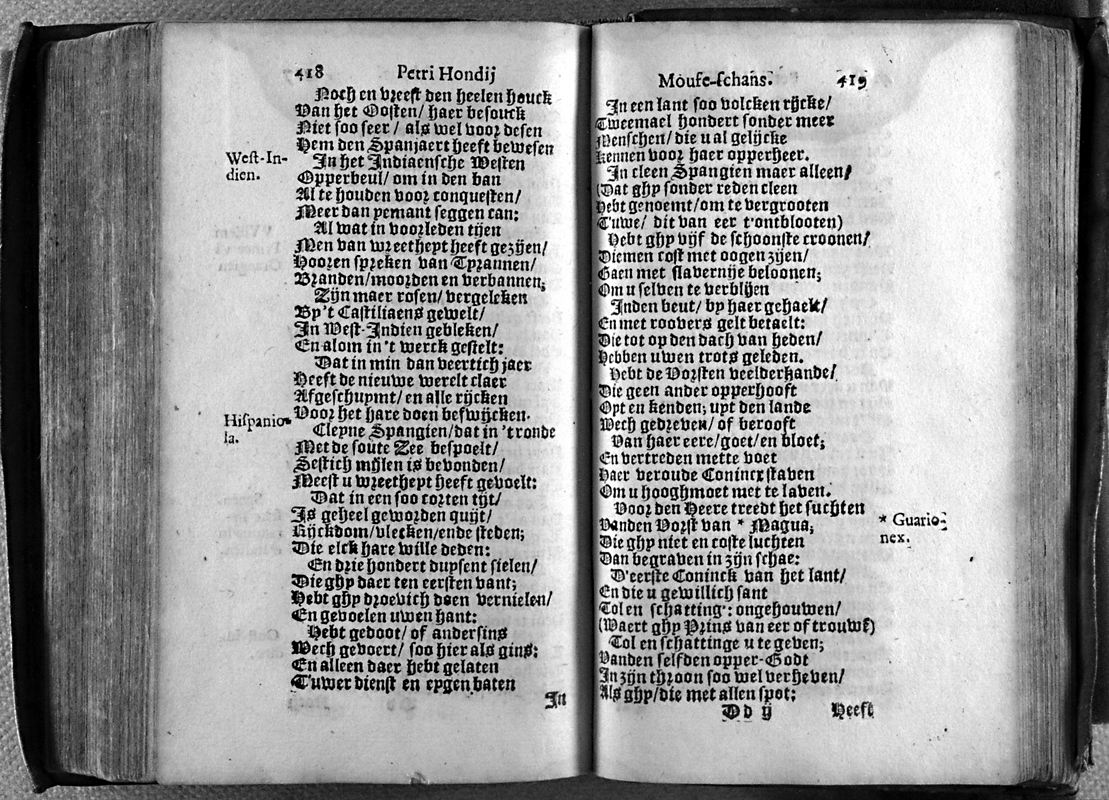 418 Petri Hondij
Noch en vreest den heelen houck
Van het Oosten/ haer besouck
Niet soo seer/ als wel voor desen
Hem den Spanjaert heeft bewesen
West-In-
dien.
In het Indiaensche Westen
Opperbeul/ om in den ban
Al te houden voor conquesten/
Meer dan yemant seggen can:
Al wat in voorleden tijen
Men van wreetheyt heeft gezijen/
Hooren spreken van Tyraunen/
Branden/moorden en verbannen;
Zijn maer rosen/ vergeleken
By't Castiliaens gewelt/
In West-Indien gebleken/
En alom in't werck gestelt:
Dat in min dan veertich jaer
Heeft de nieuwe werelt claer
Afgeschuymt/ en alle rijcken
Voor het hare doen beswijcken.
Hispanio-
la.
Cleyne Spangien/dat in 'tronde
Met de soute Zee bespoelt/
Sestich mijlen is bevonden/
Meest u wreetheyt heeft gevoelt:
Dat in een soo corten tijt/
Is geheel geworden quijt/
Rijckdom/vlecken/ende steden;
Die elck hare wille deden:
En drie hondert duysent sielen/
Die ghy daer ten eersten vant;
Hebt ghy droevich doen vernielen/
En gevoelen uwen hant:
Hebt gedoot/ of andersins
Wech gevoert/ soo hier als gins:
En alleen daer hebt gelaten
T'uwer dienst en eygen baten
In
Moufe-schans. 419
In een lant soo volcken rijcke/
Tweemael hondert sonder meer
Menschen/ die u al gelijcke
Kennen voor haer opperheer.
In cleen Spangien maer alleen/
(Dat ghy sonder reden cleen
Hebt genoemt/om te vergrooten
T'uwe/ dit van eer t'ontblooten)
Hebt ghy vijf de schoonste croonen/
Diemen cost met oogen zijen/
Gaen met slavernije beloonen;
Om u selven te verblijen
Inden beut/ by haer gehaelt/
En met roovers gelt betaelt:
Die tot op den dach van heden/
Hebben uwen trots geleden.
Hebt de Vorsten veelderhande/
Die geen ander opperhooft
Oyt en kenden; uyt den lande
Wech gedreven/ of berooft
Van haer eere/goet/en bloet;
En vertreden mette voet
Haer veroude Conincxstaven
Om u hooghmoet met te laven.
Voor den Heere treedt het suchten
Vanden Vorst van * Magua;
* Guario-
nex.
Die ghy niet en coste luchten
Dan begraven in zijn schae:
D'eerste Coninck van het lant/
En die u gewillich sant
Tol en schatting': ongehouwen/
(Waert ghy Prins van eer of trouwe)
Tol en schattinge u te geven;
Vanden selfden opper-Godt
In zijn throon soo wel verheven/
Als ghy/die met allen spot:
Dd ij Heeft